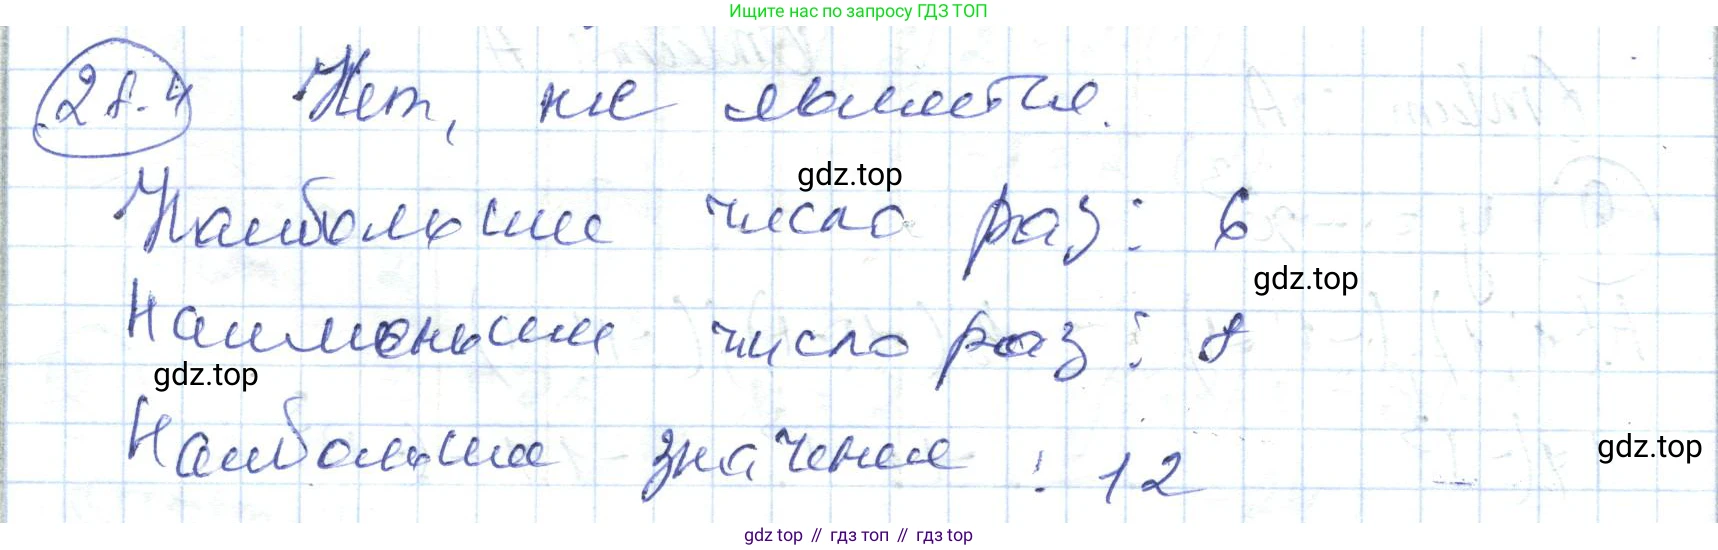 Ищите нас по запросу ГДЗ ТОП
28.4 Нет, не является.
gdz.top
Наибольшее число раз: 6
gdz.top
Наименьшее число раз: 8
gdz.top
Наибольшее значение: 12
gdz.top
gdz top // гдз топ // гдз top